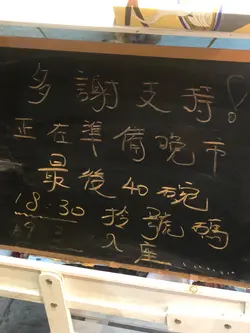 多謝支持！
正在準備晚市
最後40碗
18:30 拎號碼
入座......